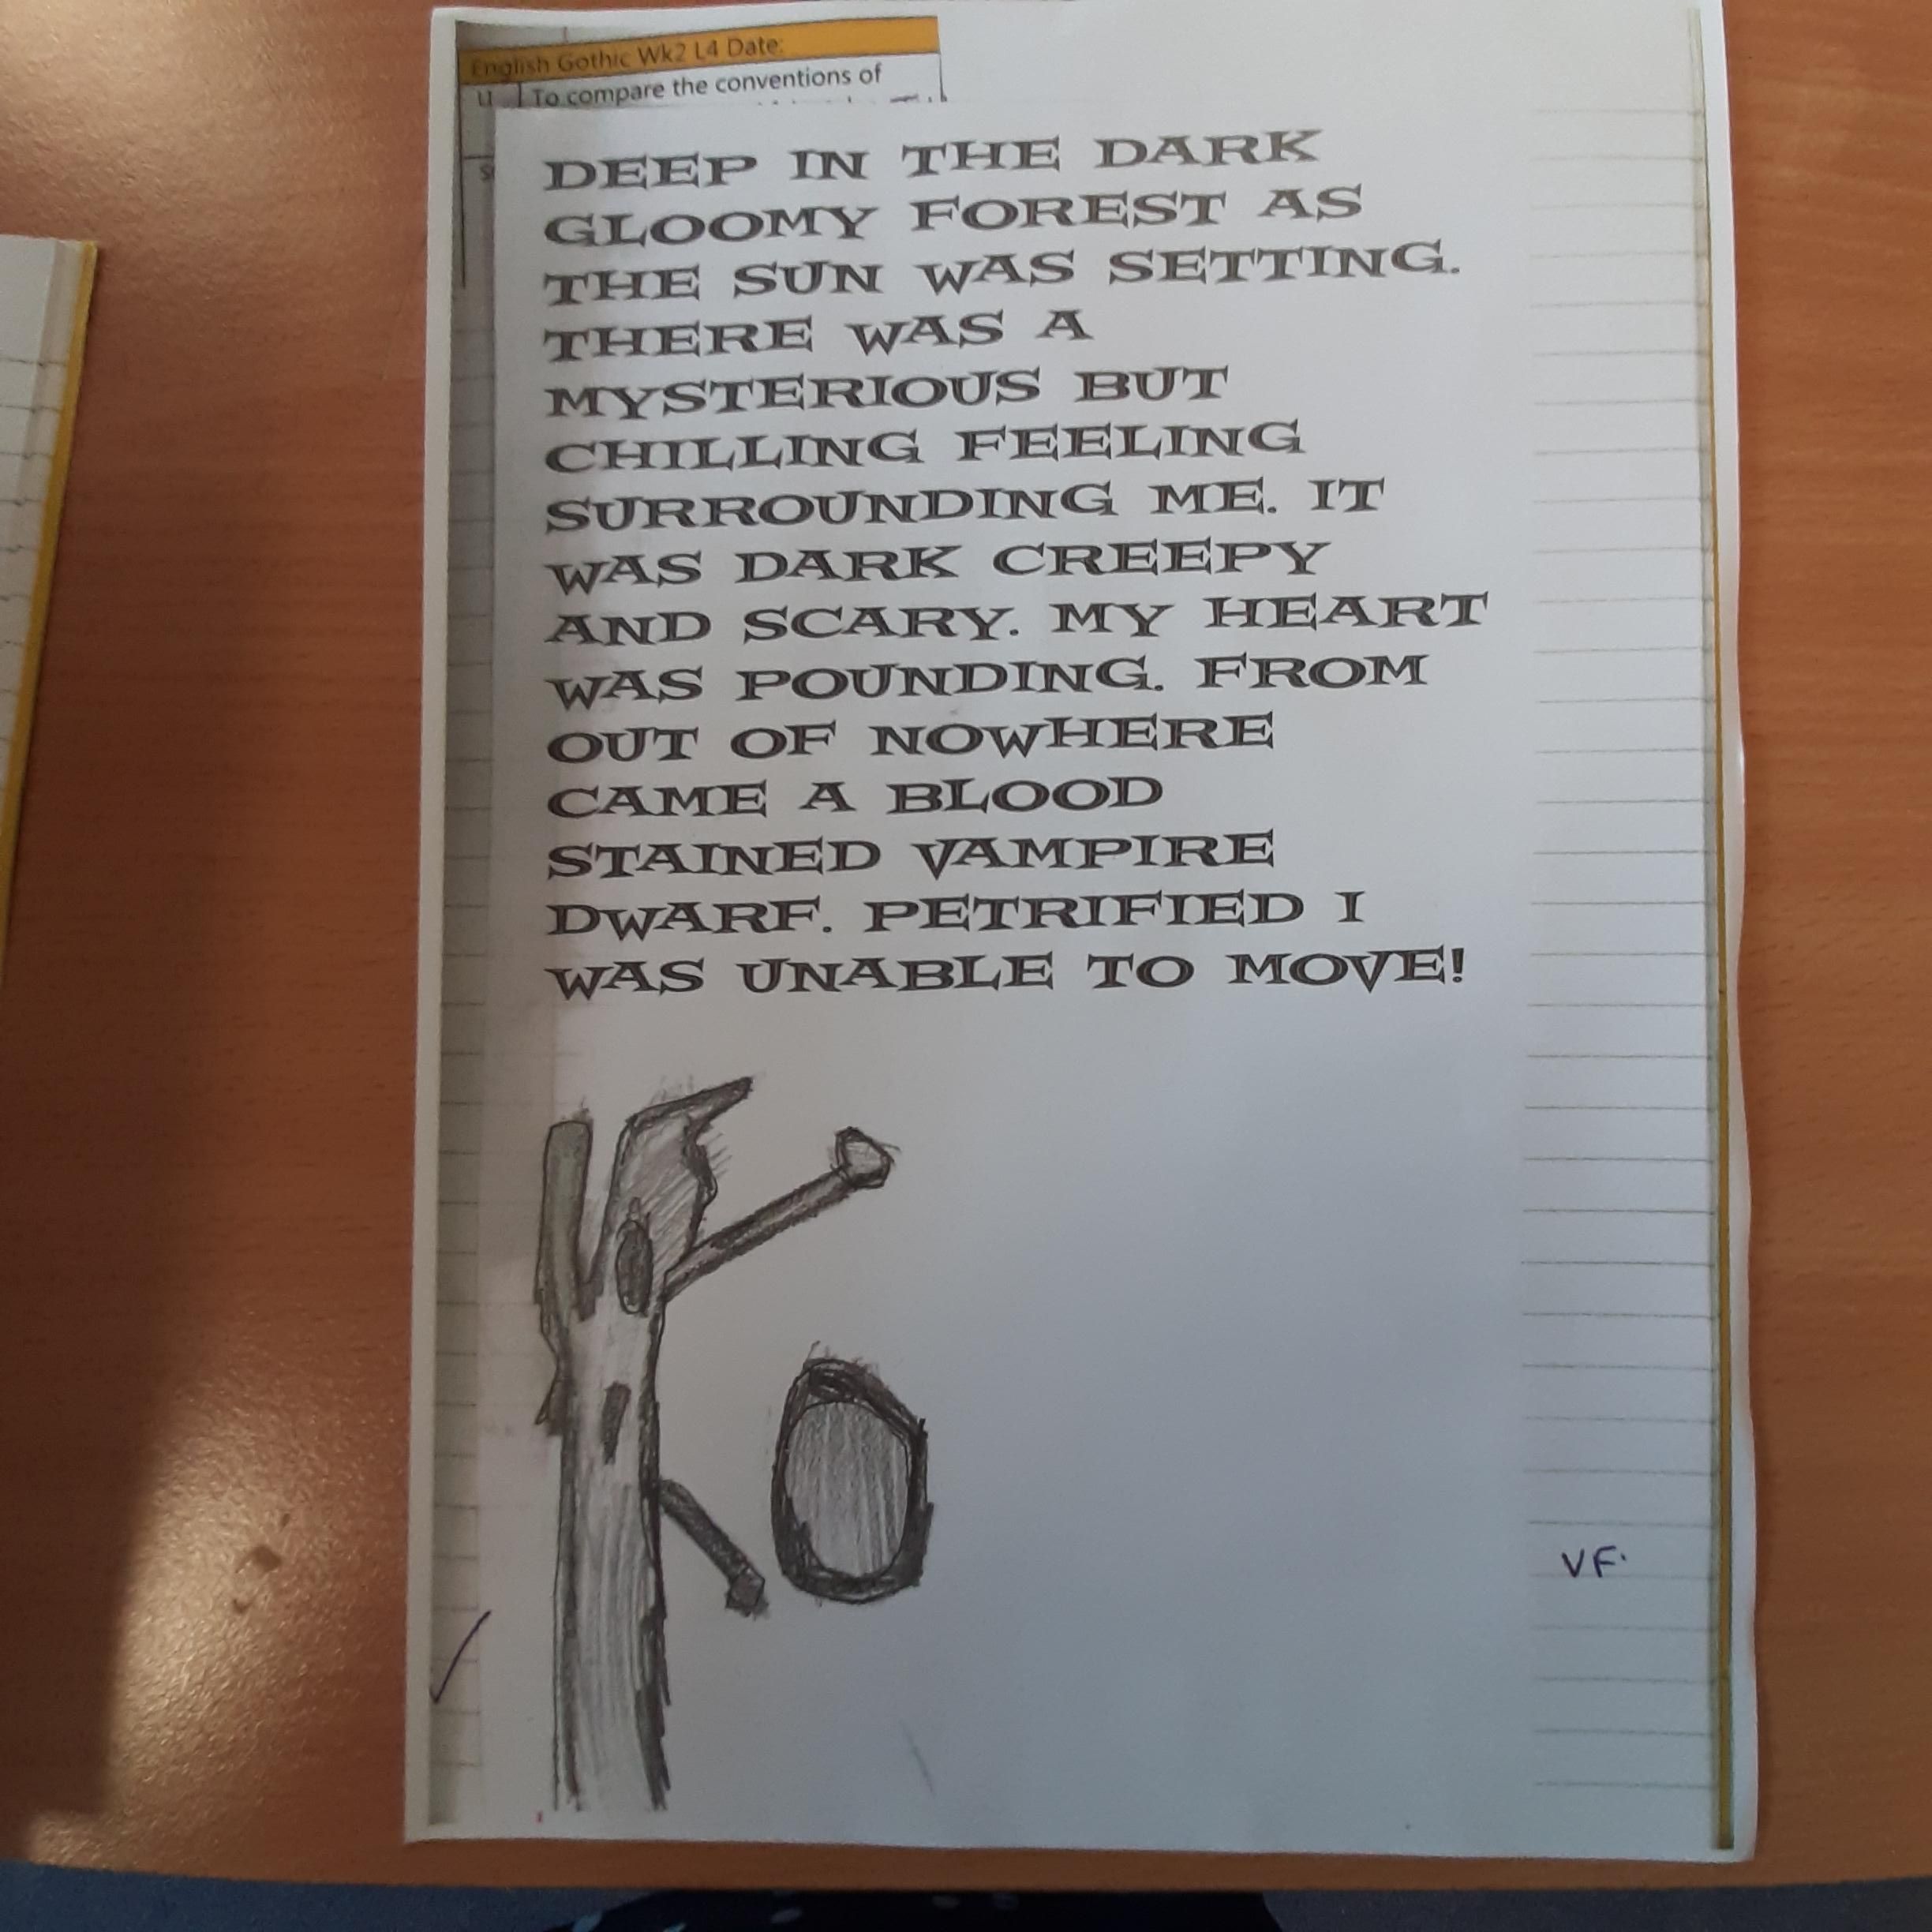 English Gothic Wk2 L4 Date:
LI To compare the conventions of
DEEP IN THE DARK
GLOOMY FOREST AS
THE SUN WAS SETTING.
THERE WAS A
MYSTERIOUS BUT
CHILLING FEELING
SURROUNDING ME. IT
WAS DARK CREEPY
AND SCARY. MY HEART
WAS POUNDING. FROM
OUT OF NOWHERE
CAME A BLOOD
STAINED VAMPIRE
DWARF. PETRIFIED I
WAS UNABLE TO MOVE!
VF.